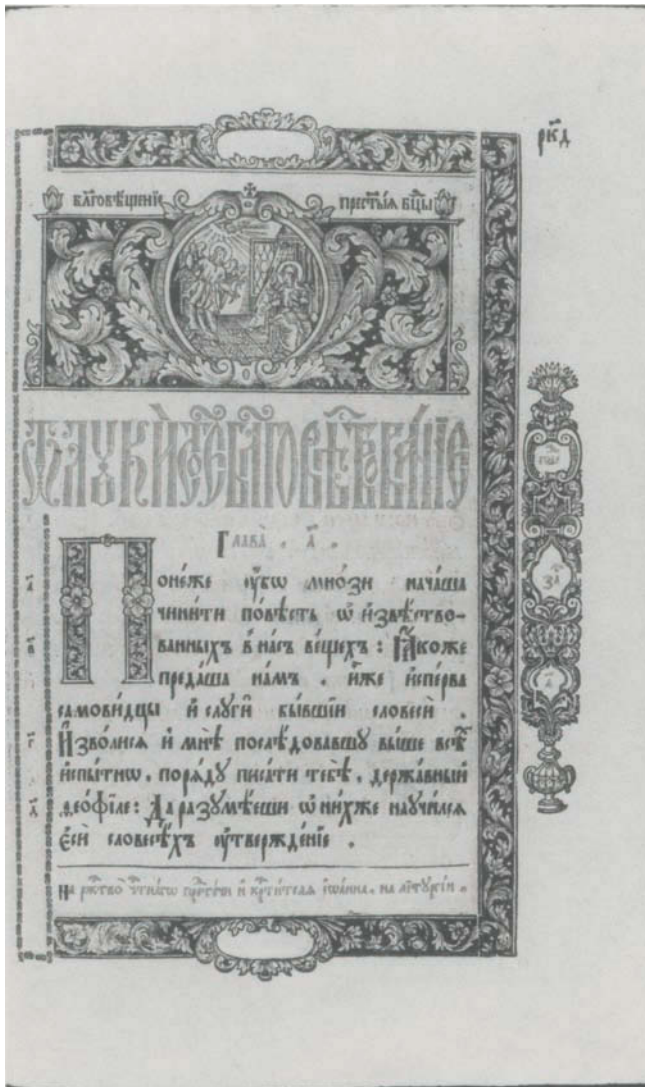 рк҃д
бл҃говѣщенїе прест҃ыѧ бц҃ы
Ѿ лꙋки ст҃ое бл҃говѣствованїе
Глава̀ . а҃ .
Поне́же ᲂу҆́бѡ мно́зи нача́ша
чини́ти по́вѣсть ѡ҆ и҆звѣ́ство-
ванныхъ в̾ на́съ ве́щехъ : Ꙗ҆́коже
преда́ша на́мъ . и҆̀же и҆спе́рва
самови́дцы и҆ слꙋги̑ бы́вшїи словесѐ .
И҆зво́лисѧ и҆ мнѣ̀ послѣ́довавшꙋ вы́ше всѧ̑
и҆спы́тнѡ, порѧ́дꙋ писа́ти тебѣ̀, держа́вный
ѳео́фїле: Да разꙋмѣ́еши ѡ҆ ни́хже наꙋчи́лсѧ
є҆сѝ словесѣ́хъ ᲂу҆твержде́нїе .
на ржⷭ҇тво̀ чⷭ҇тна́гѡ прⷣте́чи и҆ крⷭ҇ти́телѧ і҆ѡа́нна . на лїтꙋргі́и .
а҃
в҃
г҃
д҃
за҃
а҃